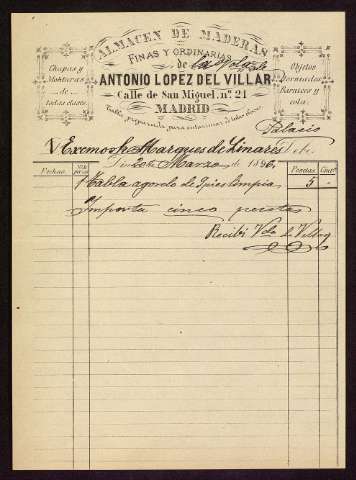 ALMACEN DE MADERAS
FINAS Y ORDINARIAS
de la Vda de
ANTONIO LOPEZ DEL VILLAR
Calle de San Miguel, nº. 21
MADRID
Chapas y
Molduras
de
todas clases
Objetos
torneados
Barnices y
cola.
Tabla preparada para entarimar de todas clases.
Palacio
Excmo Sr Marques de Linares Debe
20 de Marzo de 1896
Fechas. Pesetas Cents
1 Tabla de 7 pies limpia 5 -
Importa cinco pesetas
Recibi Vda de Villar